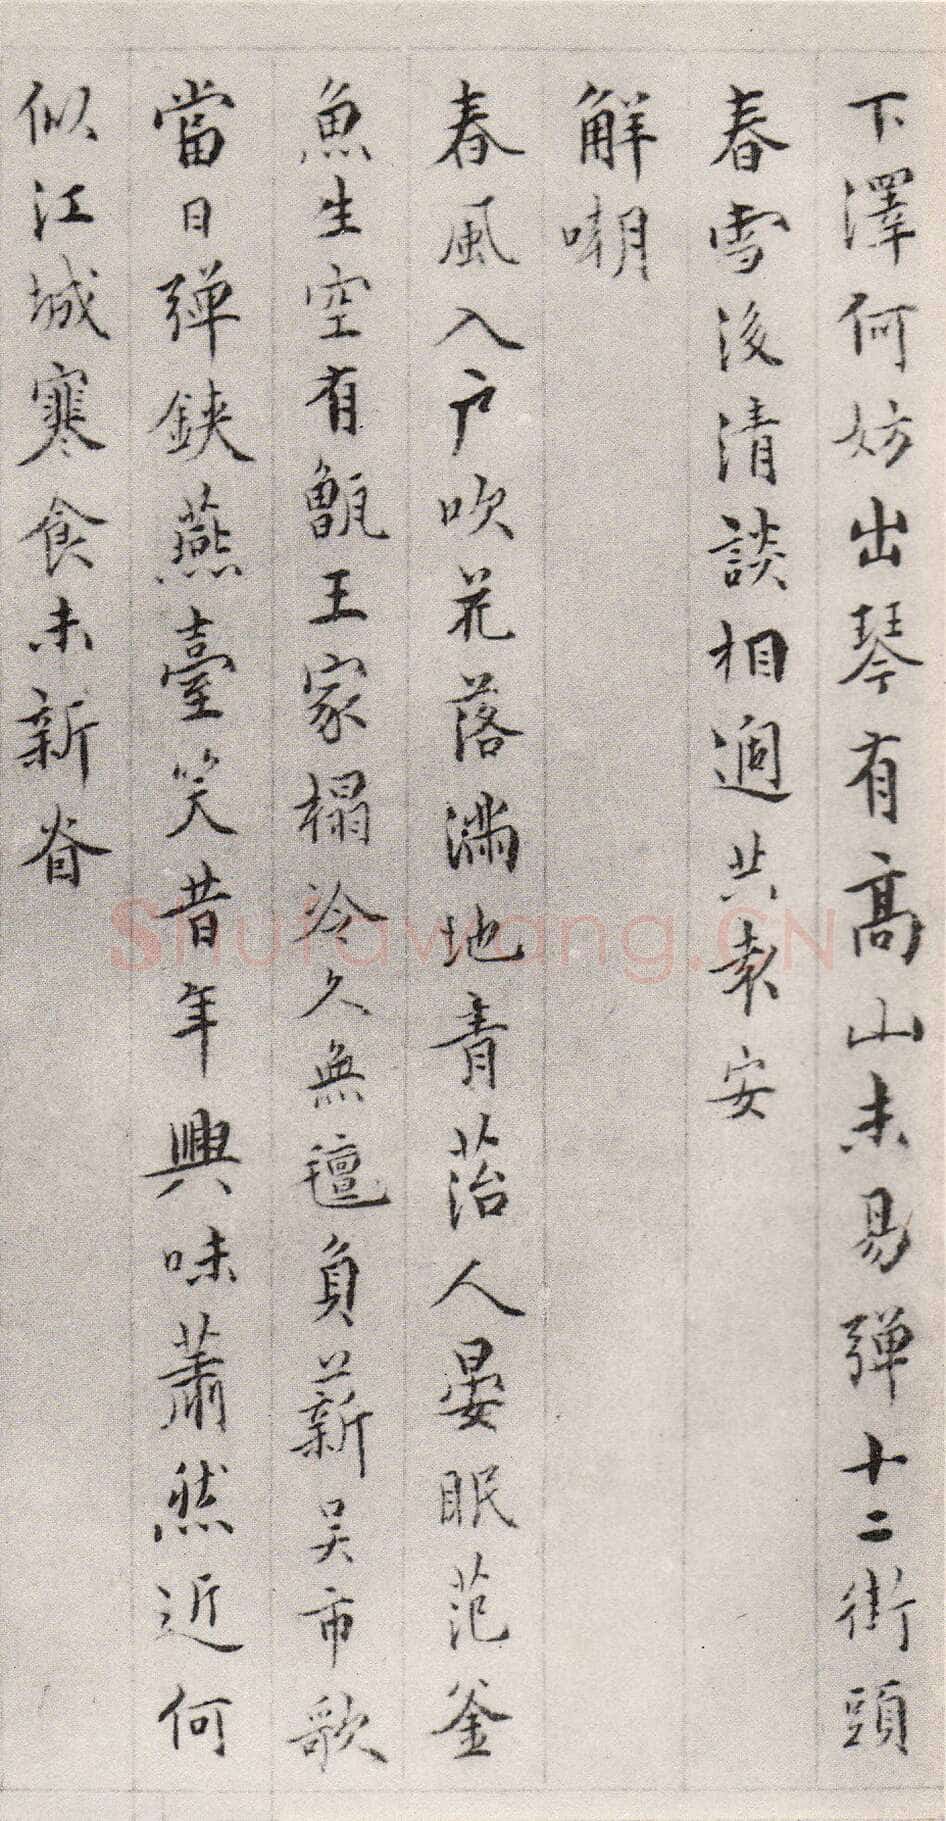 下澤何妨出琴有高山未易彈十二街頭
春雪後清談相過共袁安
解嘲
春風入户吹花落滿地青苔人晏眠范釜
魚生空有甑王家榻冷久無氊負薪吳市歌
當日彈鋏燕臺笑昔年興味蕭然近何
似江城寒食未新
Shufawang.CN